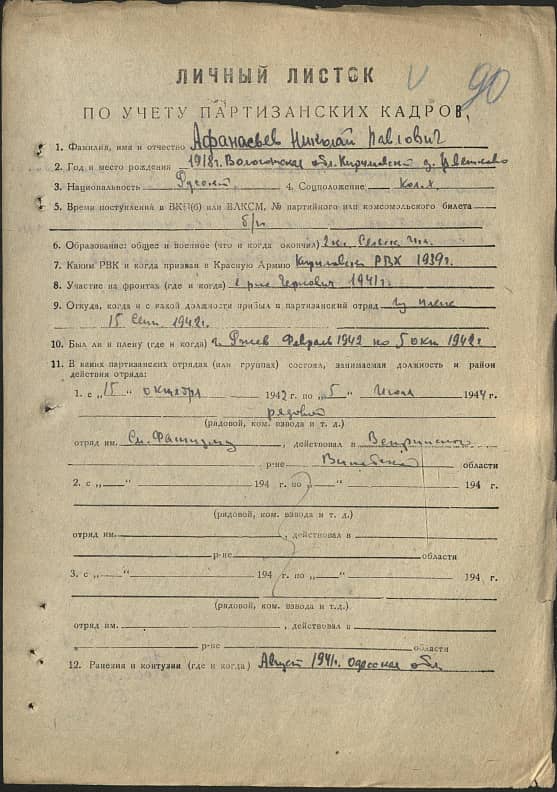 90
ЛИЧНЫЙ ЛИСТОК
ПО УЧЕТУ ПАРТИЗАНСКИХ КАДРОВ
1. Фамилия, имя и отчество Афанасьев Николай Павлович
2. Год и место рождения 1918г. Вологодская обл. д. Цветково
3. Национальность Русский 4. Соцположение Колх
5. Время поступления в ВКП(б) или ВЛКСМ, № партийного или комсомольского билета
б/п
6. Образование: общее и военное (что и когда окончил) 2 кл.
7. Каким РВК и когда призван в Красную Армию РВК 1939г.
8. Участие на фронтах (где и когда) 1941г.
9. Откуда, когда и с какой должности прибыл в партизанский отряд из плена
15 1942г.
10. Был ли в плену (где и когда) г. Ржев Февраль 1942 по 5 окт 1942г
11. В каких партизанских отрядах (или группах) состоял, занимаемая должность и район
действия отряда:
1. с „15“ октября 1942 г. по „5“ Июля 1944 г.
рядовой
(рядовой, ком. взвода и т. д.)
отряд им. См. Фашизму, действовал в
р-не Витебской области
2. с „—“ 194 г. по „—“ 194 г.
(рядовой, ком. взвода и т. д.)
отряд им. , действовал в
р-не области
3. с „—“ 194 г. по „—“ 194 г.
(рядовой, ком. взвода и т.д.)
отряд им. , действовал в
р-не области
12. Ранения и контузии (где и когда) Август 1941г. Одесская обл